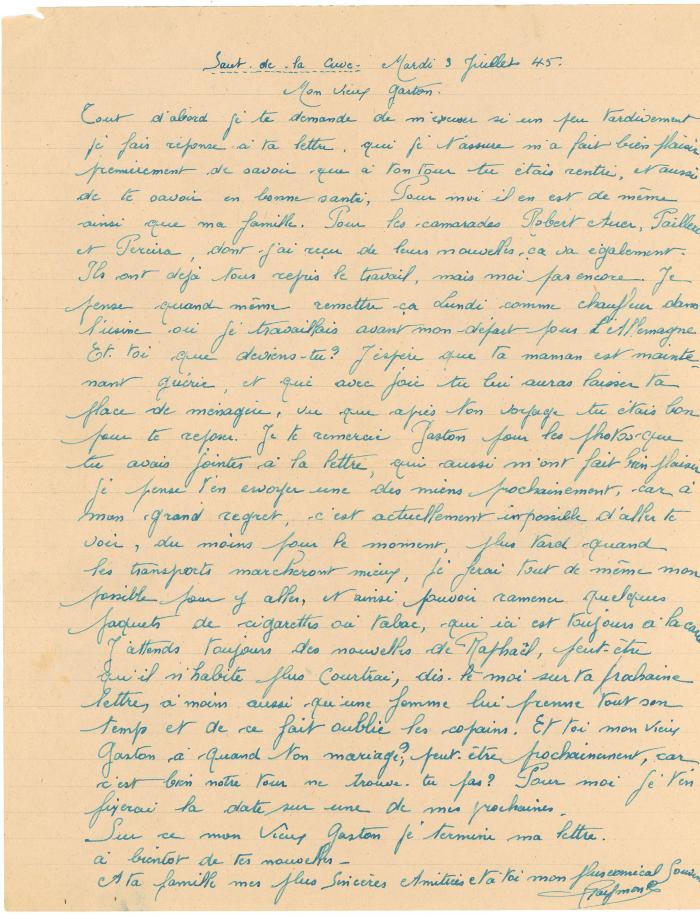 Saut-de-la Cuve- Mardi 3 Juillet 45.
Mon vieux Gaston.
Tout d'abord je te demande de m'excuser si un peu tardivement
je fais réponse à ta lettre, qui je t'assure m'a fait bien plaisir
premièrement de savoir que à ton tour tu étais rentré, et aussi
de te savoir en bonne santé, Pour moi il en est de même
ainsi que ma famille. Pour les camarades Robert Auer,
et Pereira, dont j'ai reçu de leurs nouvelles, ça va également.
Ils ont dejà tous repris le travail, mais moi pas encore. Je
pense quand même remettre ça Lundi comme chauffeur dans
l'usine où je travaillais avant mon départ pour L'Allemagne
Et toi que deviens-tu? J'espère que ta maman est mainte-
nant guérie, et que avec joie tu lui auras laisser ta
place de ménagère, vu que après ton voyage tu étais bon
pour te reposer. Je te remercie Gaston pour les photos que
tu avais jointes à la lettre, qui aussi m'ont fait bien plaisir
je pense t'en envoyer une des miens prochainement, car à
mon grand regret, c'est actuellement impossible d'aller te
voir, du moins pour le moment, plus tard quand
les transports marcheront mieux, je ferai tout de même mon
possible pour y aller, et ainsi pouvoir ramener quelques
paquets de cigarettes où tabac, qui ici est toujours à la
J'attends toujours des nouvelles de Raphaël, peut-être
qu'il n'habite plus Courtrai, dis-le moi sur ta prochaine
lettre, à moins aussi qu'une femme lui prenne tout son
temps et de ce fait oublie les copains. Et toi mon vieux
Gaston à quand ton mariage?, peut-être prochainement, car
c'est bien notre tour ne trouve-tu pas? Pour moi je t'en
fixerai la date sur une de mes prochaines.
Sur ce mon vieux Gaston je termine ma lettre.
à bientôt de tes nouvelles-
A ta famille mes plus sincères Amitiés et à toi mon plus amical
Raymond